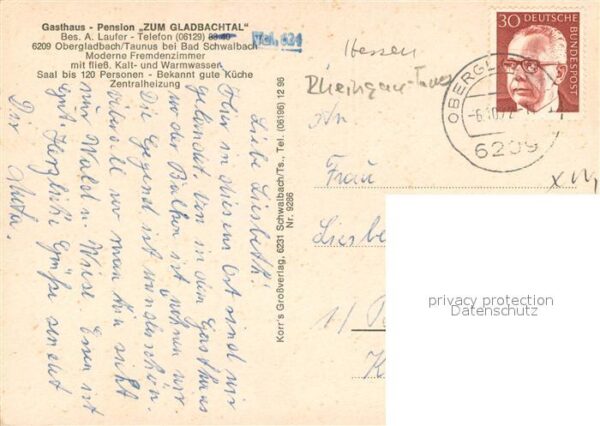 Gasthaus - Pension „ZUM GLADBACHTAL"
Bes. A. Laufer - Telefon (06129)
Tel. 624
6209 Obergladbach/Taunus bei Bad Schwalbach
Moderne Fremdenzimmer
mit fließ. Kalt- und Warmwasser
Saal bis 120 Personen - Bekannt gute Küche
Zentralheizung
Liebe Liesbett!
Hier in diesem Ort sind wir
gelandet. Un in dem Gasthaus
wo der Balkon ist wohnen wir.
Die Gegend ist wunderschön.
wir man hier sieht
nur Wald u. Wiese. Essen ist
gut. Herzliche Grüße sendet
Dir
Korr's Großverlag, 6231 Schwalbach/Ts., Tel. (06196) 12 96
Nr. 9286
Hessen
Rheingau-Taunus
30 DEUTSCHE BUNDESPOST
OBERGL
6209
An
Frau
Liesbe
privacy protection
Datenschutz